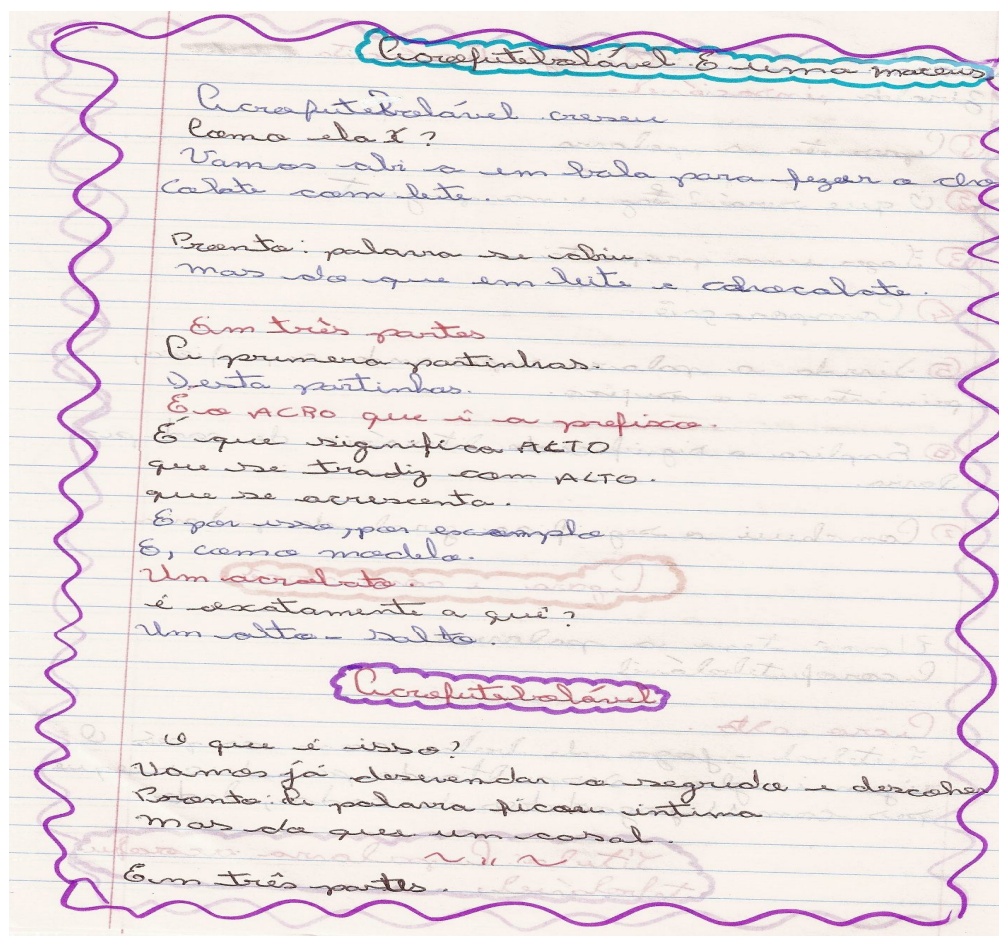 Acrofutebolável. É uma maceus
Acrofutebolável cresceu
Como ela x?
Vamos abi a em bala para fezer o cho
colate com leite.
Pronto: palavra se abriu.
mas do que em leite e cohocolate.
Em três partes
A primera partinhas.
Desta partinhas.
É o ACRO que é a prefixo.
É que significa ALTO
que se tradiz com ALTO.
que se acrescenta.
E por isso, por exemplo
E, como modelo.
Um acrobata.
é exatamente a quê?
Um alto-salto.
Acrofutebolável
O que é isso?
Vamos já desvendar o segrido e descober
Pronto: A palavra ficou intima
mas do que um casal.
~ " ~
Em três partes.